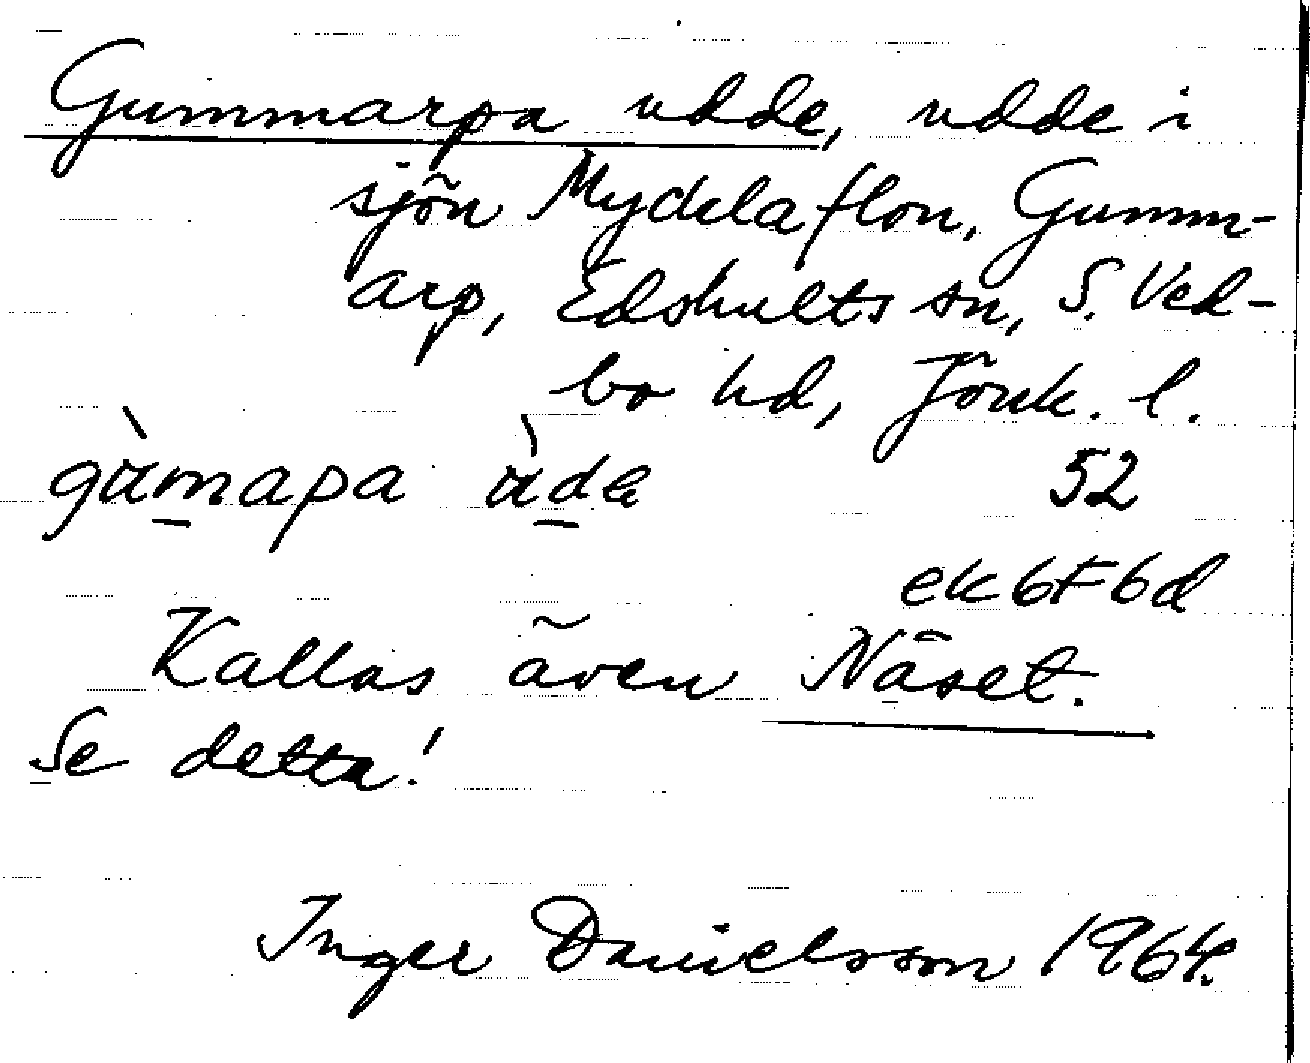 Gummarpa udde, udde i
sjön Mydelaflon, Gumm-
arp, Edshults sn, S. Ved-
bo hd, Jönk. l.
gùmapa ùde 52
ek 6F6d
Kallas även Näset.
Se detta!
Inger Danielsson 1964.